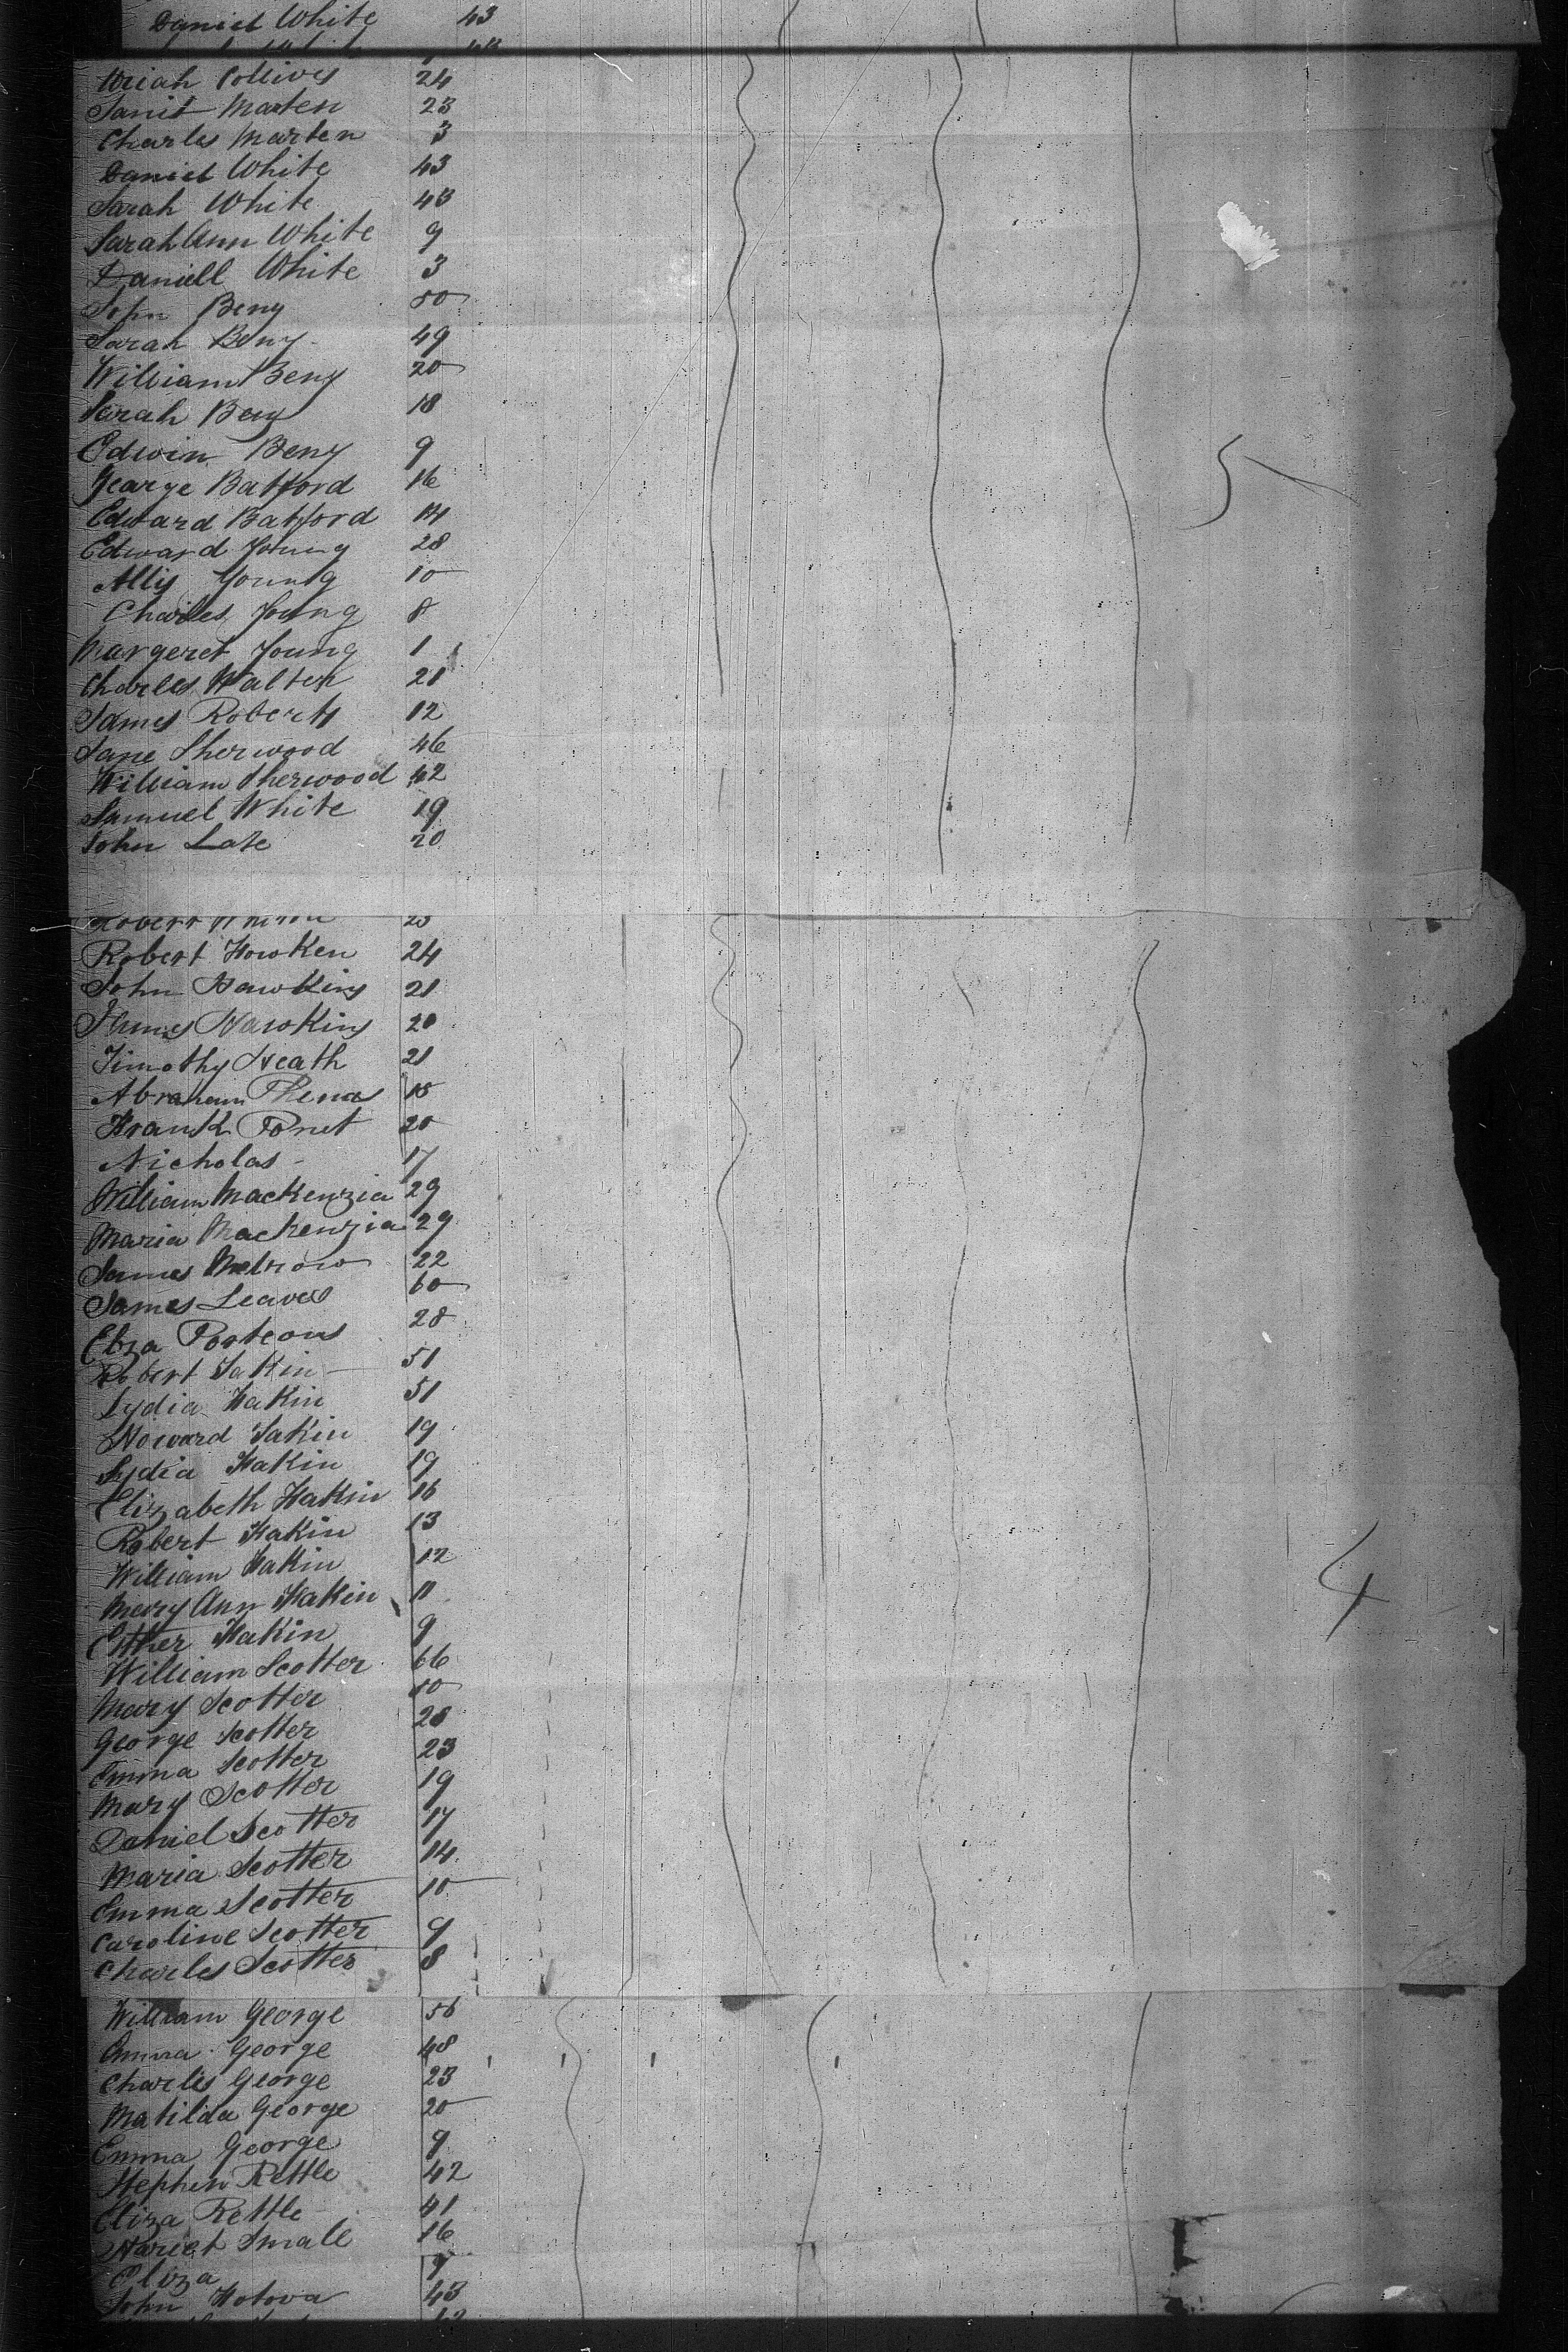 Daniel White 43
Uriah Collives 24
Janit Marten 23
Charles Marten 3
Daniel White 43
Sarah White 43
Sarah Ann White 9
Daniell White 3
John Beny 50
Sarah Beny 49
William Beny 20
Sarah Beny 18
Edwin Beny 9
George Batford 16
Edward Batford 14
Edward Young 28
Ally Young 10
Charles Young 8
Margeret Young 1
Charles Walter 21
James Roberts 12
Jane Sherwood 46
William Sherwood 42
Samuel White 19
John Late 20
5
Robert 23
Robert Howken 24
John Hawkins 21
James Hawkins 20
Timothy Heath 21
Abraham 18
Frank Ponet 20
Nicholas 17
William Mackenzia 29
Maria Mackenzia 29
James Melrow 22
James Leaves 60
Elza Porteous 28
Robert Hakin 51
Lydia Hakin 51
Howard Hakin 19
Lydia Hakin 19
Elizabeth Hakin 16
Robert Hakin 13
William Hakin 12
Mary Ann Hakin 11
Esther Hakin 9
William Scotter 66
Mary Scotter 50
George Scotter 28
Emma Scotter 23
Mary Scotter 19
Daniel Scotter 17
Maria Scotter 14
Emma Scotter 10
Caroline Scotter 9
Charles Scotter 8
4
William George 56
Emma George 48
Charles George 23
Matilda George 20
Emma George 9
Stephen Rettle 42
Eliza Rettle 41
Hariet Small 16
Eliza 7
John Hotova 43